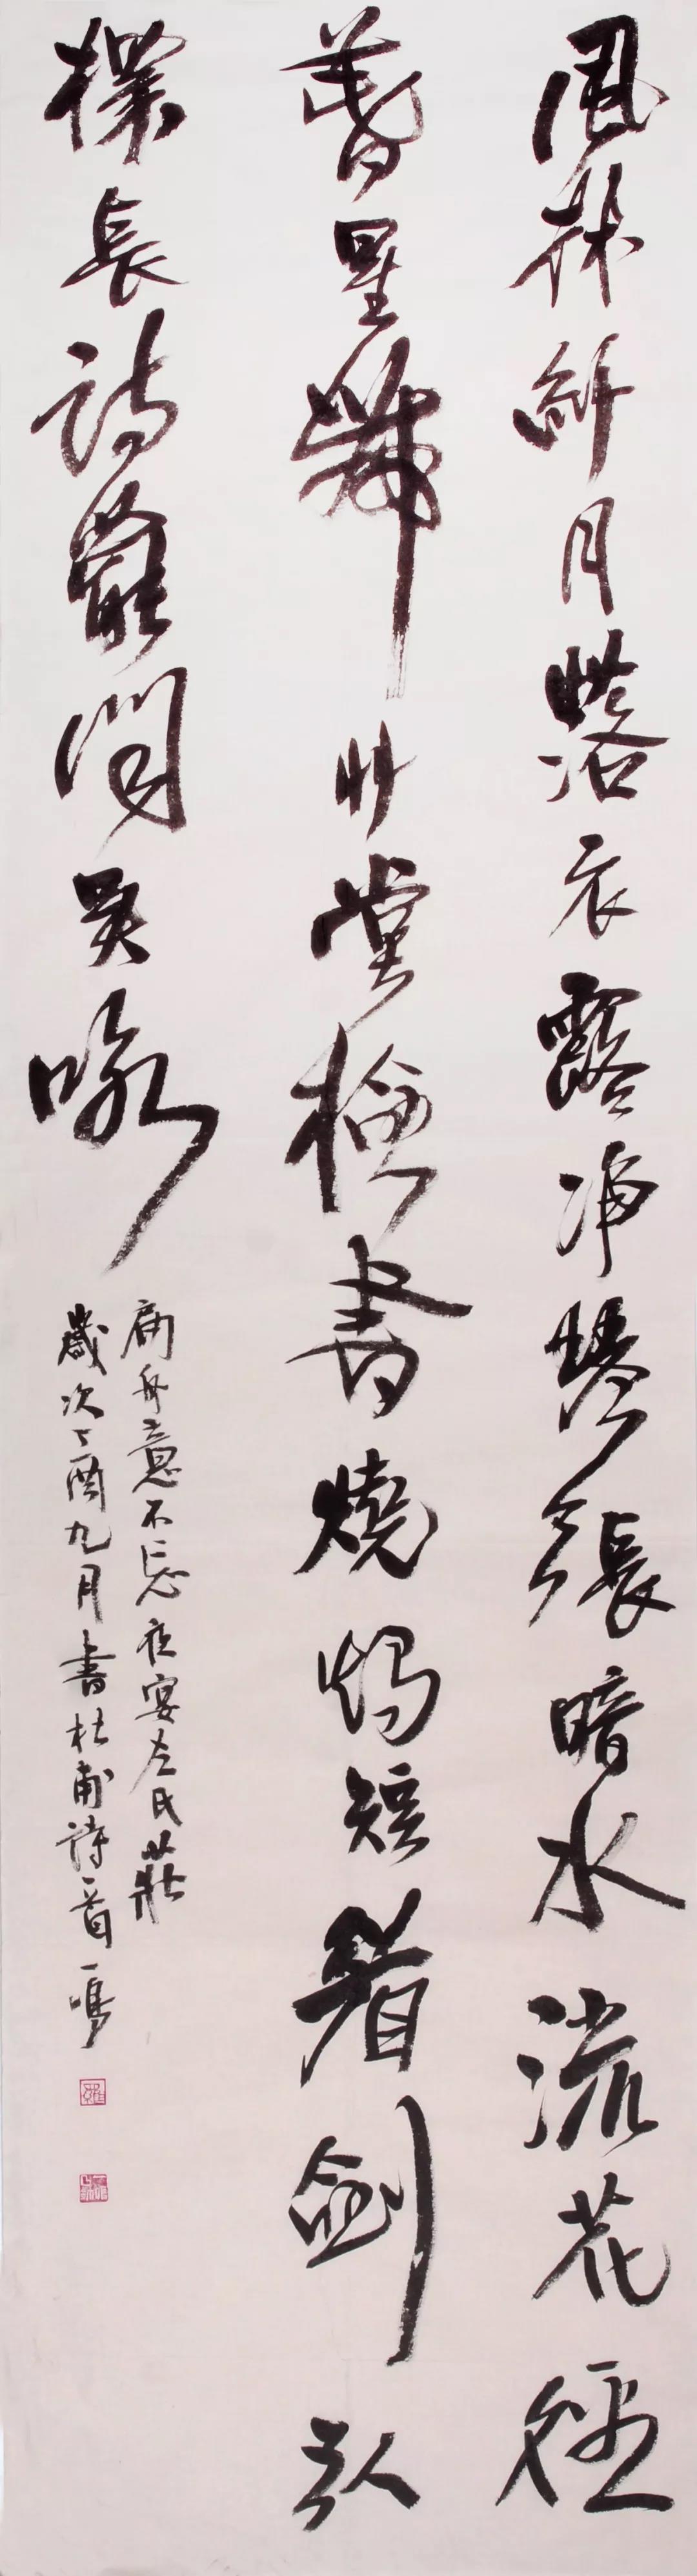 風林纤月落衣露净琴張暗水流花徑
春星帶艸堂檢書燒燭短看劍引
杯長詩罷聞吳咏
扁舟意不忘夜宴左氏莊
歲次丁酉九月書杜甫詩一首一鳴